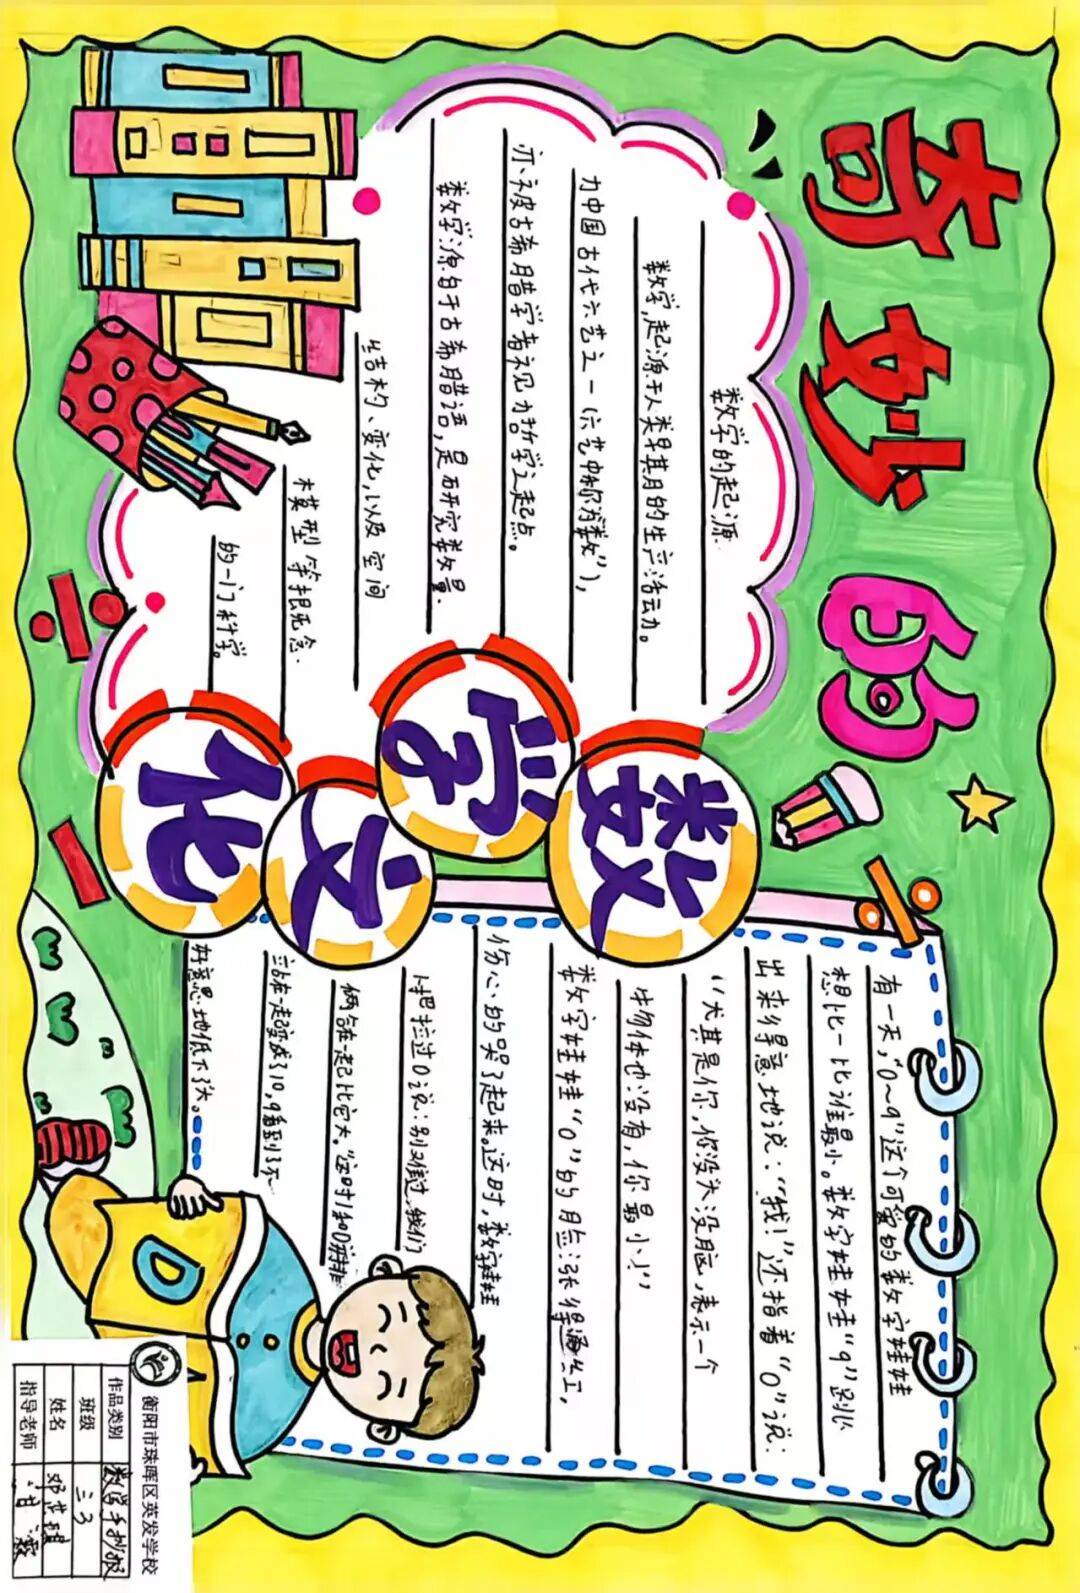 奇妙的
数学文化
数学的起源
数学,起源于人类早期的生产活动。
为中国古代六艺之一(六艺中称为"数"),
亦被古希腊学者视为哲学之起点。
数学源自于古希腊语,是研究数量、
结构、变化,以及空间
模型等概念.
的一门科学。
有一天,"0~9"这个可爱的数字娃娃
想比一比谁最小。数字娃娃"9"
出来得意地说:"我!"还指着"0"说:
"尤其是你,你没头没脑,表示一个
物体也没有,你最小!"
数字娃娃"0"的脸涨得通红,
伤心的哭了起来。这时,数字娃娃
1把拉过0说:别难过,我们
俩站在一起比它大。"这时1和0
站在一起变成了10,9看到了不
好意思地低下了头。
衡阳市珠晖区英发学校
作品类别 数学手抄报
班级 三3
姓名
指导老师